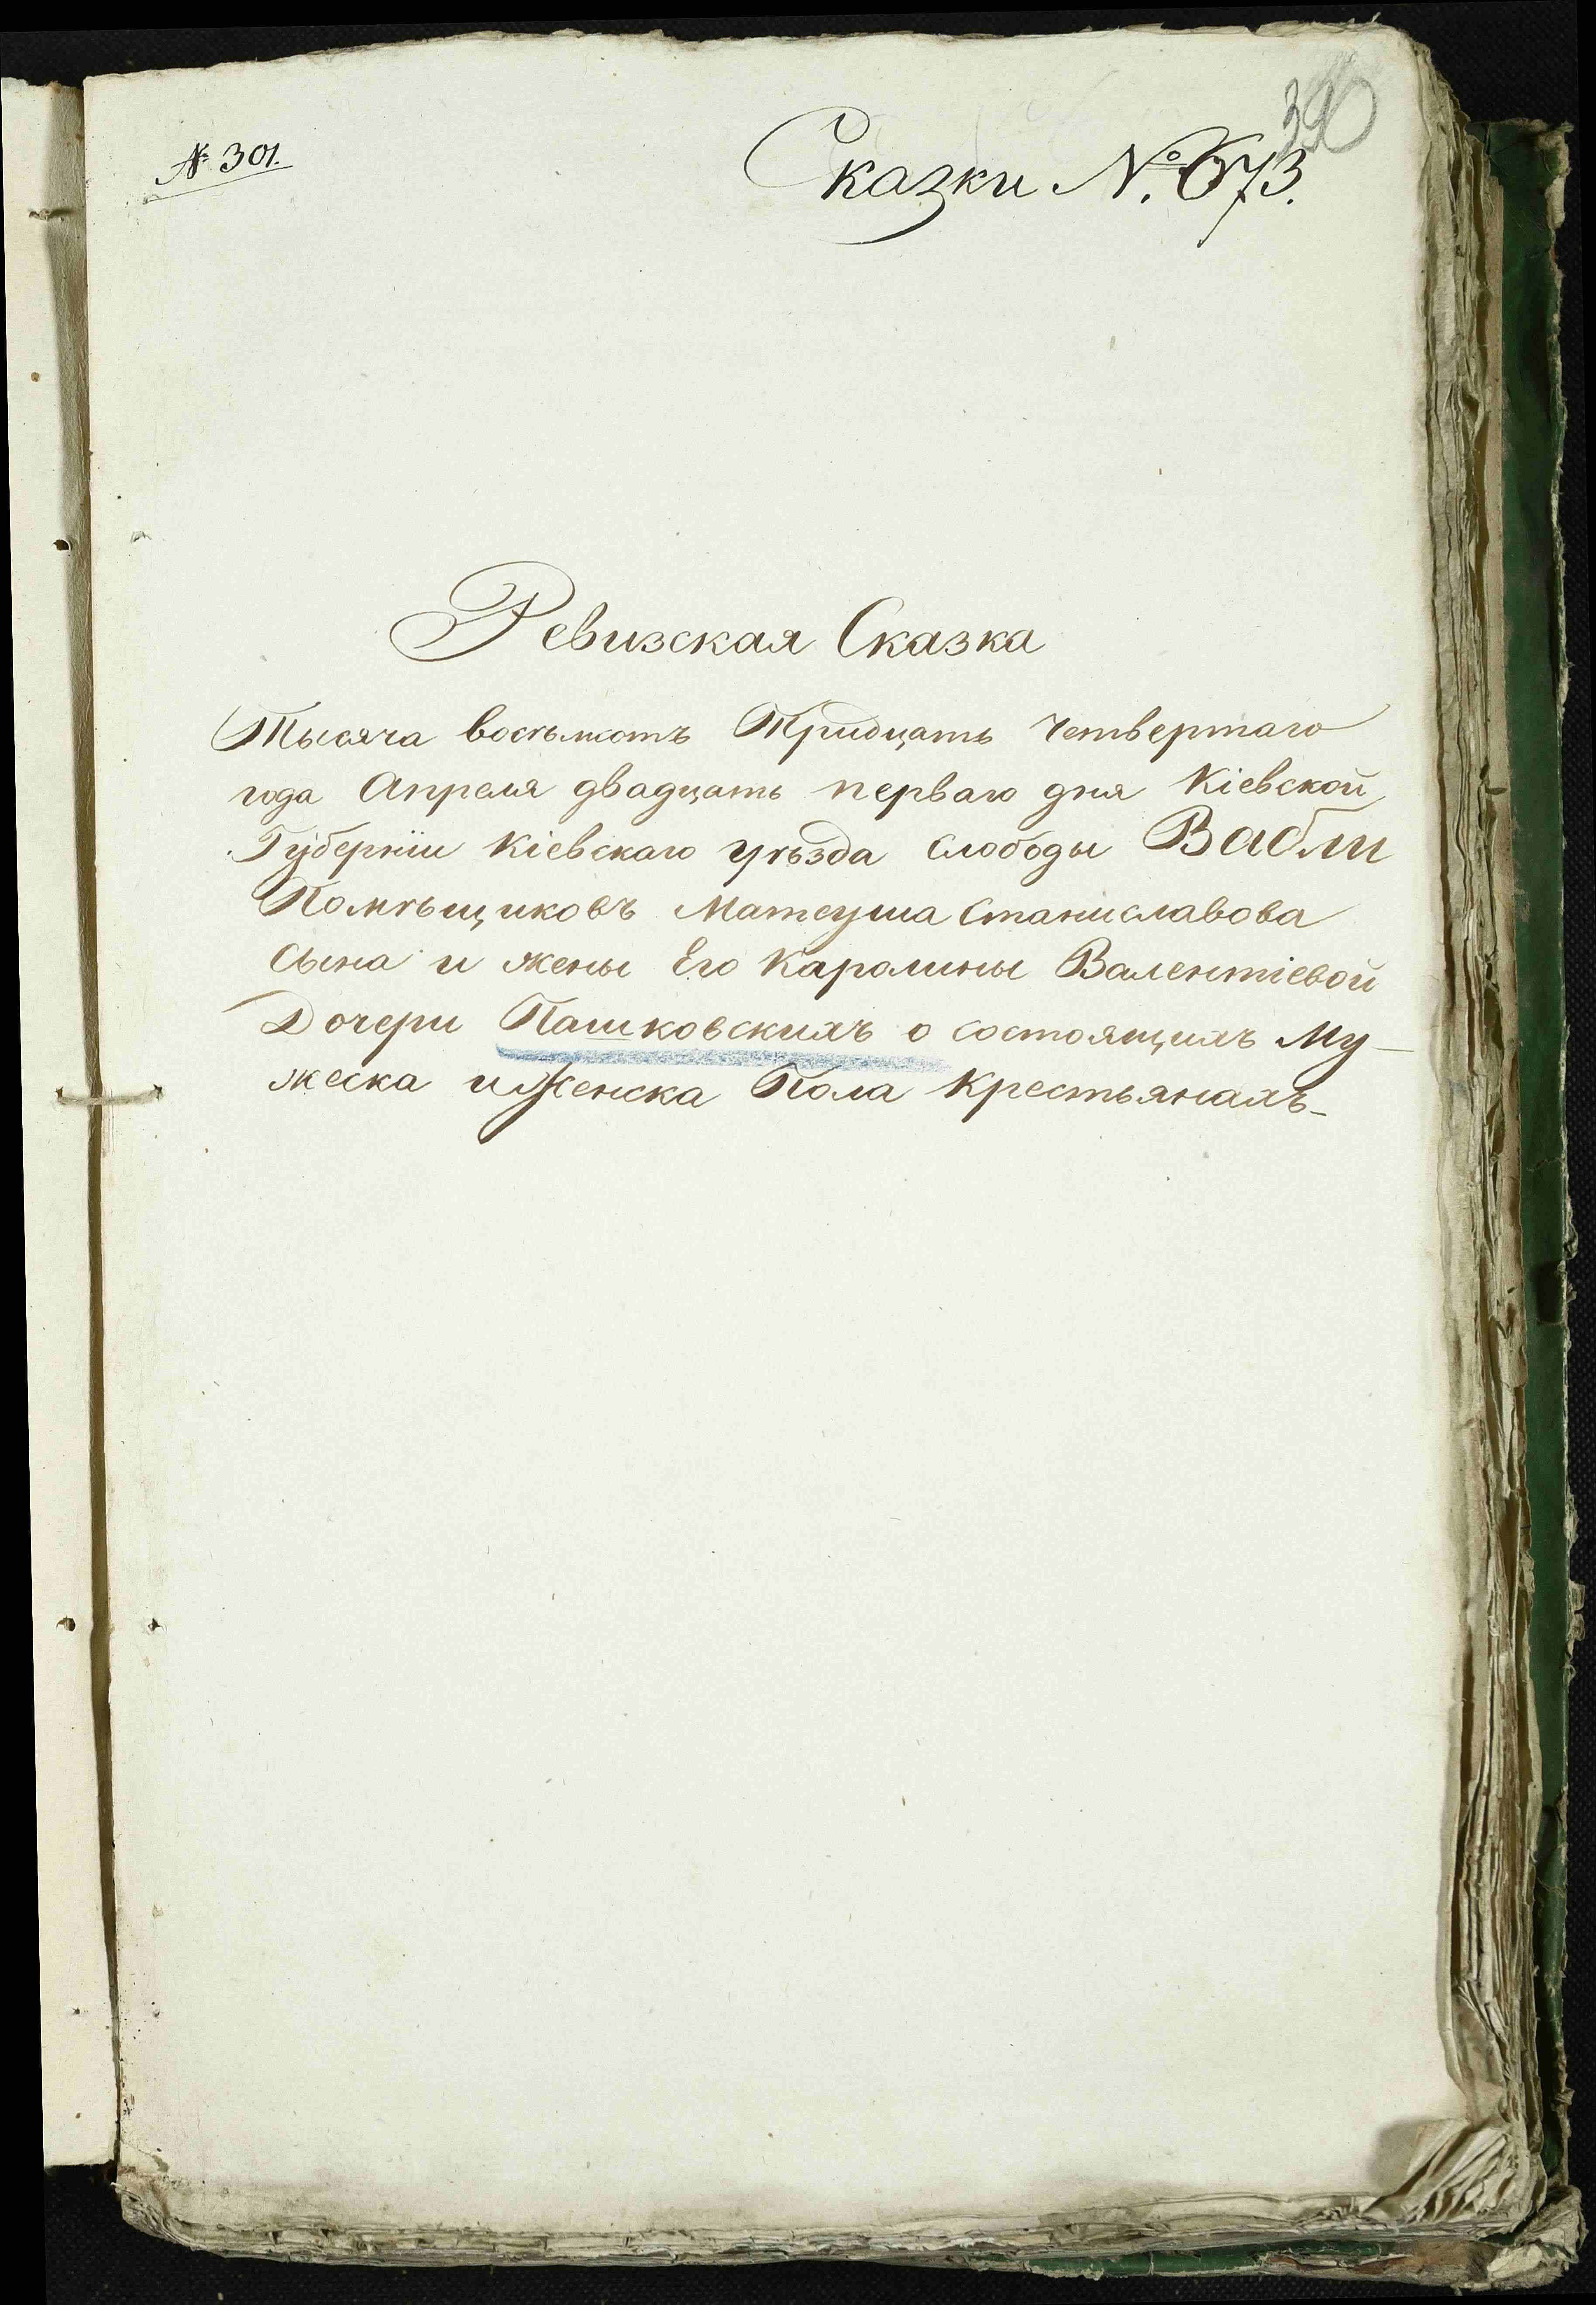 № 301.
Сказки №. 673.
Ревизская Сказка
Тысяча восѣмсотъ Тридцать Четвертаго
года Апреля двадцать перваго дня Кіевской
Губерніи Кіевскаго уѣзда Слободы Вабли
Помѣщиковъ Матеуша Станиславова
Сына и жены Его Каролины Валентіевой
Дочери Пашковскихъ о состоящихъ Му-
жеска и Женска Пола Крестьянахъ-